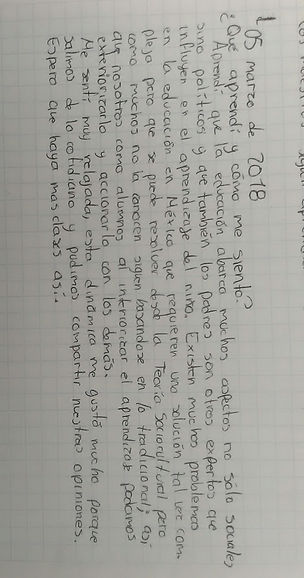 05 marzo de 2018
¿Qué aprendí y cómo me siento?
Aprendí que la educación abarca muchos aspectos no sólo sociales,
sino políticos y que también los padres son otros expertos que
influyen en el aprendizaje del niño. Existen muchos problemas
en la educación en México que requieren una solución tal vez com-
pleja pero que se puede resolver desde la Teoría Sociocultural pero
como muchos no la conocen siguen basandose en lo tradicional; así
que nosotros como alumnos al interiorizar el aprendizaje podamos
exteriorizarlo y accionarlo con los demás.
Me sentí muy relajada, esta dinámica me gustó mucho porque
salimos de lo cotidiano y pudimos compartir nuestras opiniones.
Espero que haya mas clases así.